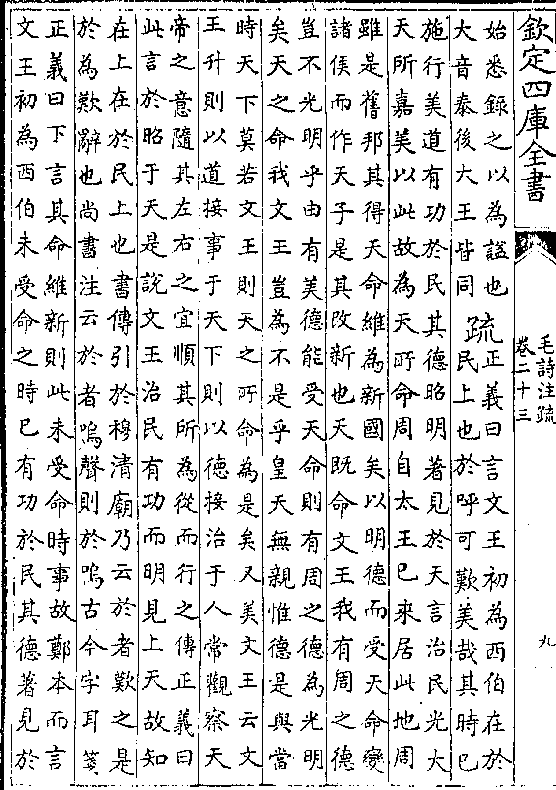 欽定四庫全書
毛詩注疏
卷二十三
九
始悉錄之以為諡也
大音泰後大王皆同
疏
正義曰言文王初為西伯在於
民上也於呼可歎美哉其時已
施行美道有功於民其德昭明著見於天言治民光大
天所嘉美以此故為天所命周自太王已來居此地周
雖是舊邦其得天命維為新國矣以明德而受天命變
諸侯而作天子是其改新也天既命文王我有周之德
豈不光明乎由有美德能受天命則有周之德為光明
矣天之命我文王豈為不是乎皇天無親惟德是與當
時天下莫若文王則天之所命為是矣又美文王云文
王升則以道接事于天下則以德接治于人常觀察天
帝之意隨其左右之宜順其所為從而行之傳正義曰
此言於昭于天是說文王治民有功而明見上天故知
在上在於民上也書傳引於穆清廟乃云於者歎之是
於為歎辭也尚書注云於者嗚聲則於嗚古今字耳箋
正義曰下言其命維新則此未受命時事故鄭本而言
文王初為西伯未受命之時已有功於民其德著見於